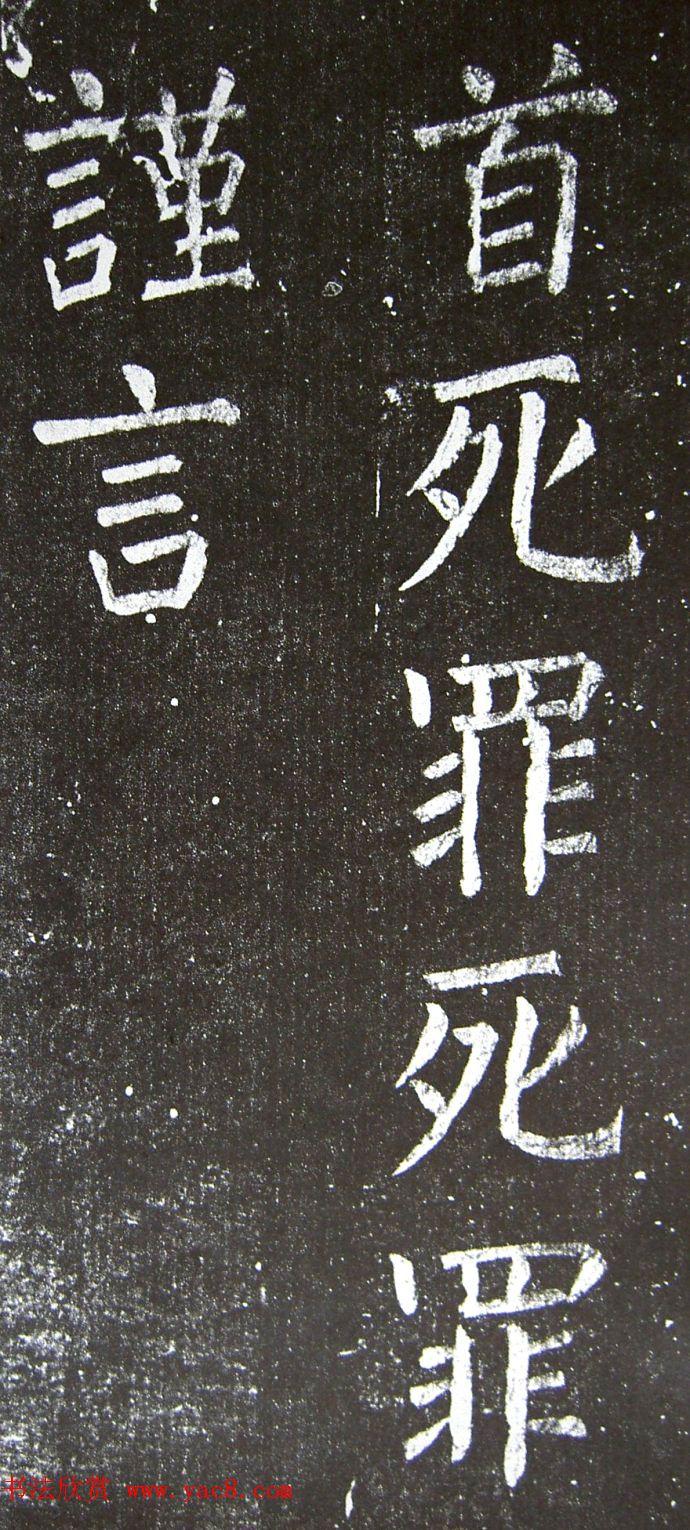 首死罪死罪
謹言
书法欣赏 www.yac8.com